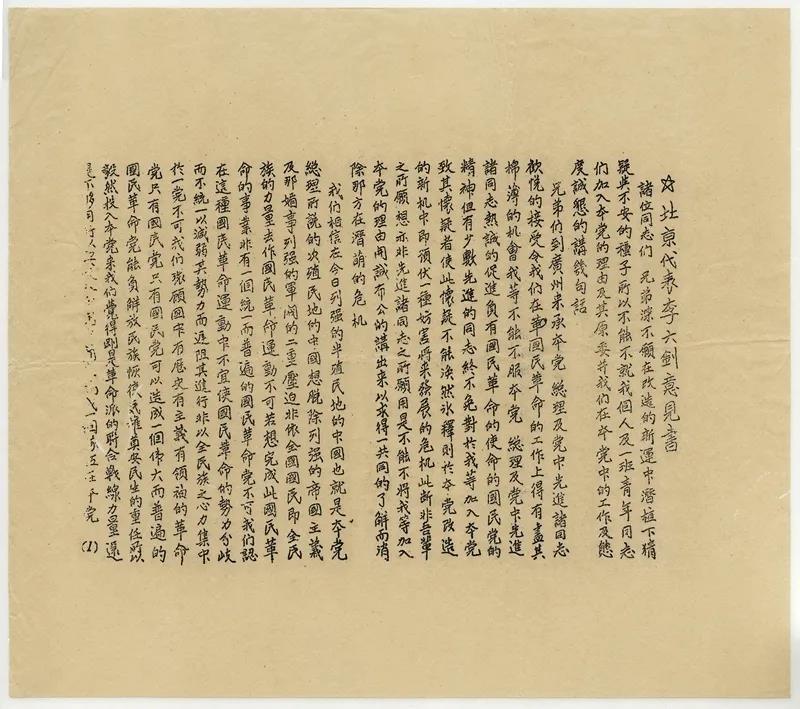 ☆北京代表李大釗意見書
諸位同志們 兄弟深不願在改造的新運中潛植下猜
疑與不安的種子所以不能不說我個人及一班青年同志
們加入本党的理由及其原委并我們在本党中的工作及態
度誠懇的講幾句話
兄弟們到廣州來承本党 總理及党中先進諸同志
欣悅的接受令我們在華國民革命的工作上得有盡其
棉薄的機會我等不能不服本党 總理及党中先進
諸同志熱誠的促進負有國民革命的使命的國民党的
精神但有少數先進的同志終不免對於我等加入本党
致其懷疑者使此懷疑不能渙然氷釋則於本党改造
的新机中即伏一種妨害將來發展的危机此断非吾輩
之所願想亦非先進諸同志之所願用是不能不將我等加入
本党的理由開誠布公的講出來以求得一共同的了解而消
除那方在潛萌的危机
我們相信在今日列强的半殖民地的中國也就是本党
總理所說的次殖民地的中國想脱除列强的帝國主義
及那媚事列强的軍閥的二重壓迫非依全國國民即全民
族的力量去作國民革命運動不可若想完成此國民革
命的事業非有一個統一而普遍的國民革命党不可我們認
在這種國民革命運動中不宜使國民革命的勢力分岐
而不統一以減弱其勢力而遲阻其進行非以全民族之心力集中
於一党不可我們環顧國中有歷史有主義有領袖的革命
党只有國民党只有國民党可以造成一個偉大而普遍的
國民革命党能負解放民族恢復民權奠安民生的重任所以
毅然投入本党來我們覺得剛是革命派的聯合戰線力量還
(1)